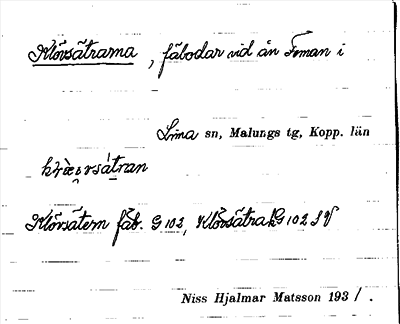 Klövsätrarna, fäbodar vid ån Feman i
Lima sn, Malungs tg, Kopp. län
Klövsätern fäb. G 102, Klövsätrak G 102 SV
Niss Hjalmar Matsson 193/.